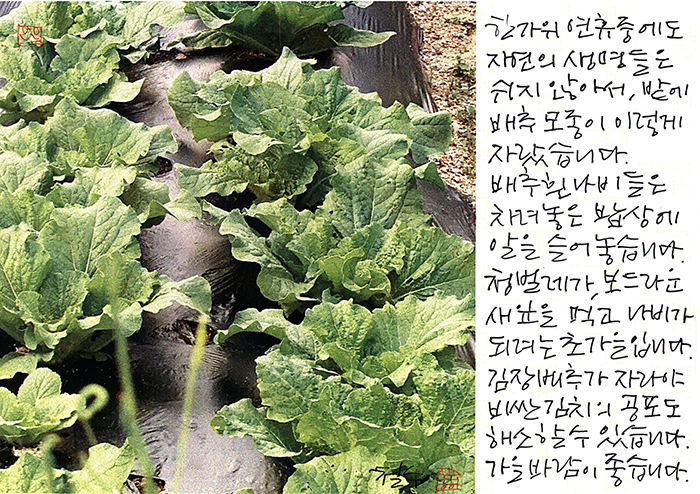 한가위 연휴중에도
자연의 생명들은
쉬지 않아서, 밭에
배추 모종이 이렇게
자랐습니다.
배추흰나비들은
차려놓은 밥상에
알을 슬어 놓습니다.
청벌레가 보드라운
새잎을 먹고 나비가
되려는 초가을입니다.
김장배추가 자라야
비싼 김치의 공포도
해소할 수 있습니다.
가을 바람이 좋습니다.